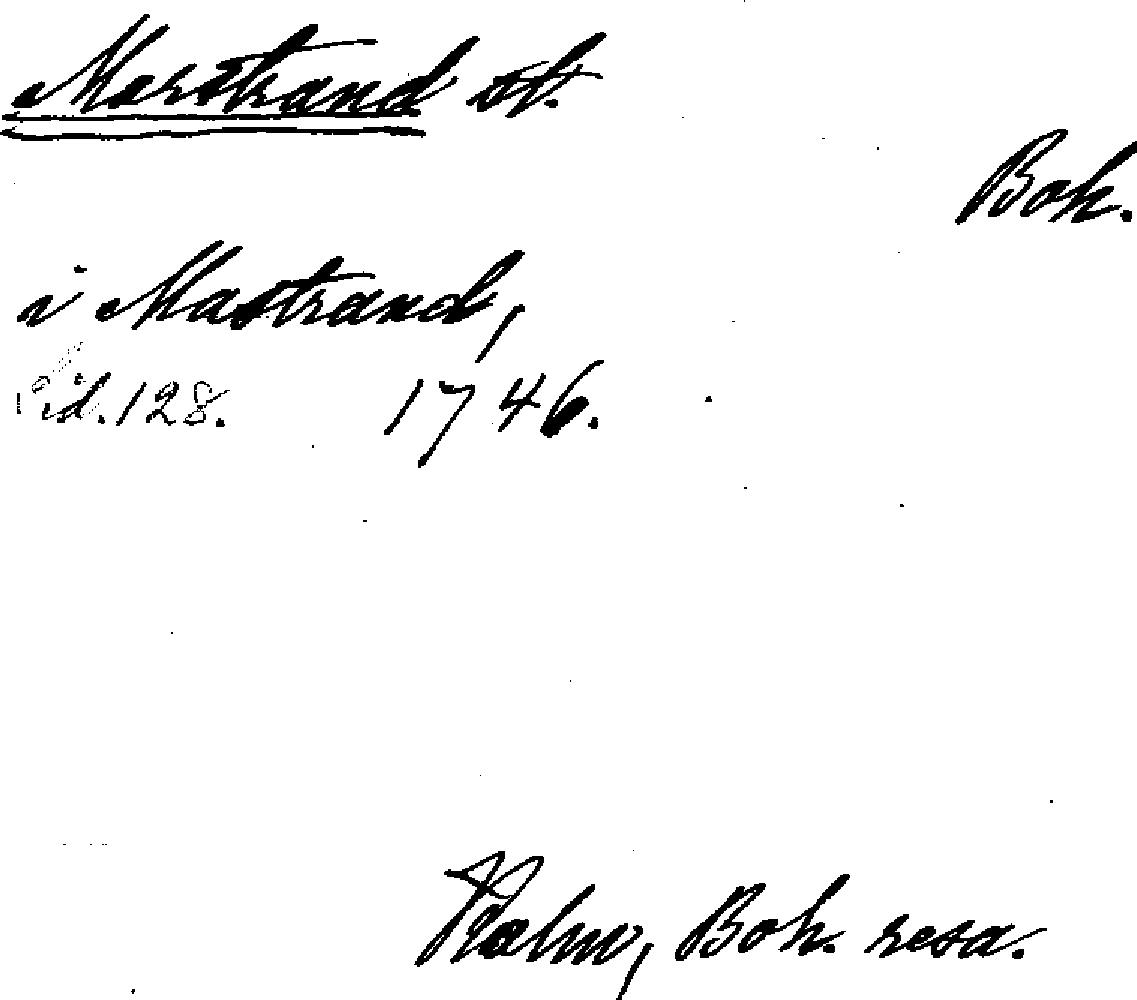 Marstrand st.
Boh.
i Mastrand,
Sid. 128. 1746.
Kalm, Boh. resa.